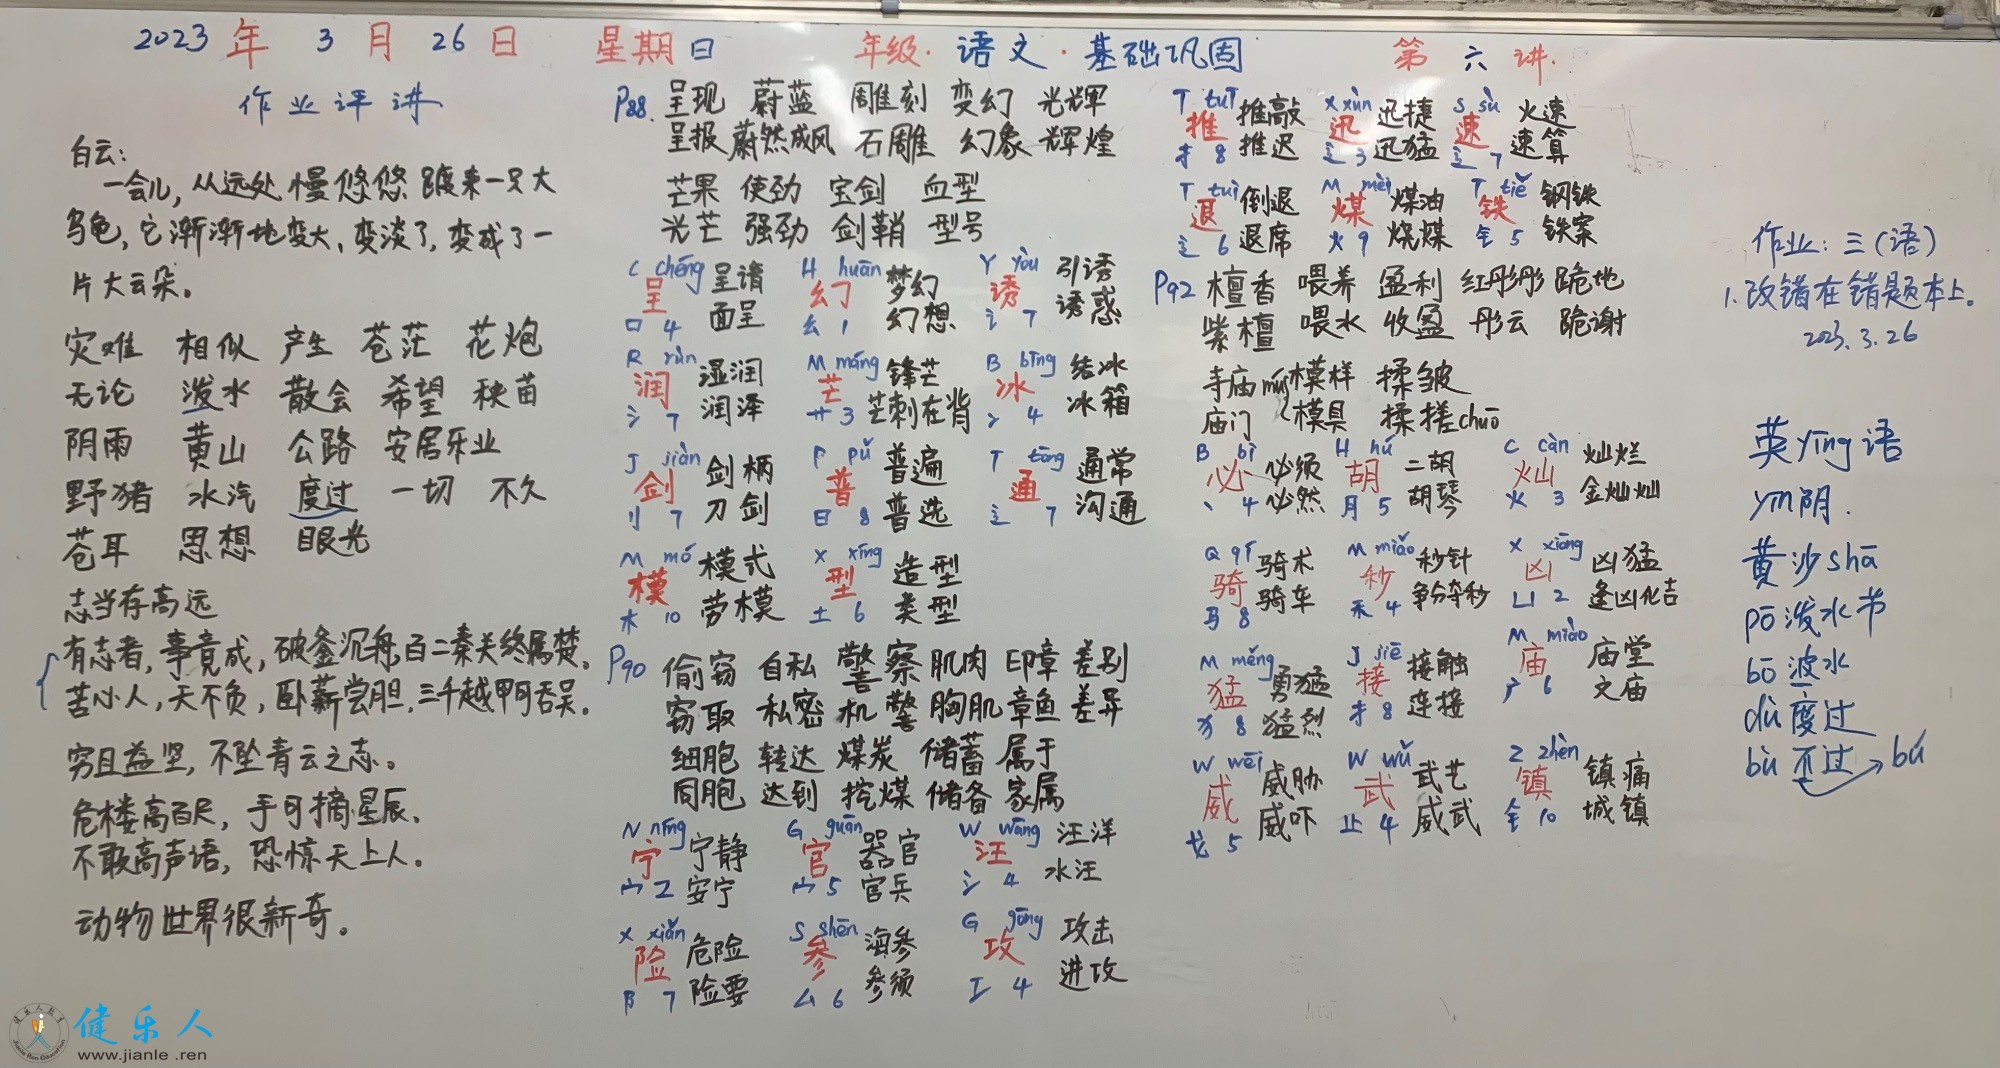 2023 年 3 月 26 日 星期 日 年级·语文·基础巩固 第 六 讲.
作业评讲
白云:
一会儿,从远处慢悠悠踱来一只大
乌龟,它渐渐地变大,变淡了,变成了一
片大云朵。
灾难 相似 产生 苍茫 花炮
无论 泼水 散会 希望 秧苗
阴雨 黄山 公路 安居乐业
野猪 水汽 度过 一切 不久
苍耳 思想 眼光
志当存高远
有志者,事竟成,破釜沉舟,百二秦关终属楚。
苦心人,天不负,卧薪尝胆,三千越甲可吞吴。
穷且益坚,不坠青云之志。
危楼高百尺,手可摘星辰、
不敢高声语,恐惊天上人。
动物世界很新奇。
P88. 呈现 蔚蓝 雕刻 变幻 光辉
呈报 蔚然成风 石雕 幻象 辉煌
芒果 使劲 宝剑 血型
光芒 强劲 剑鞘 型号
C chéng 呈请 H huàn 梦幻 Y yòu 引诱
呈 幻 诱
口 4 面呈 幺 1 幻想 讠 7 诱惑
R rùn 湿润 M máng 锋芒 B bīng 结冰
润 芒 冰
氵 7 润泽 艹 3 芒刺在背 冫 4 冰箱
J jiàn 剑柄 P pǔ 普遍 T tōng 通常
剑 普 通
刂 7 刀剑 日 8 普选 辶 7 沟通
M mó 模式 X xíng 造型
模 型
木 10 劳模 土 6 类型
P90 偷窃 自私 警察 肌肉 印章 差别
窃取 私密 机警 胸肌 章鱼 差异
细胞 转达 煤炭 储蓄 属于
同胞 达到 挖煤 储备 家属
N níng 宁静 G guān 器官 W wāng 汪洋
宁 官 汪
宀 2 安宁 宀 5 官兵 氵 4 水汪
X xiǎn 危险 S shēn 海参 G gōng 攻击
险 参 攻
阝 7 险要 厶 6 参须 工 4 进攻
T tuī 推敲 X xùn 迅捷 S sù 火速
推 迅 速
扌 8 推迟 辶 3 迅猛 辶 7 速算
T tuì 倒退 M méi 煤油 T tiě 钢铁
退 煤 铁
辶 6 退席 火 9 烧煤 钅 5 铁案
P92 檀香 喂养 盈利 红彤彤 跪地
紫檀 喂水 收盈 彤云 跪谢
寺庙 mú 模样 揉皱
庙门 模具 揉搓 chuō
B bì 必须 H hú 二胡 C càn 灿烂
必 胡 灿
丶 4 必然 月 5 胡琴 火 3 金灿灿
Q qí 骑术 M miǎo 秒针 X xiōng 凶猛
骑 秒 凶
马 8 骑车 禾 4 争分夺秒 凵 2 逢凶化吉
M měng 勇猛 J jiē 接触 M miào 庙堂
猛 接 庙
犭 8 猛烈 扌 8 连接 广 6 文庙
W wēi 威胁 W wǔ 武艺 Z zhèn 镇痛
威 武 镇
戈 5 威吓 止 4 威武 钅 10 城镇
作业:三(语)
1.改错在错题本上。
2023.3.26
英 yīng 语
yīn 阴.
黄沙 shā
pō 泼水节
bō 波水
dù 度过
bù 不过 bú
健乐人
www.jianle .ren